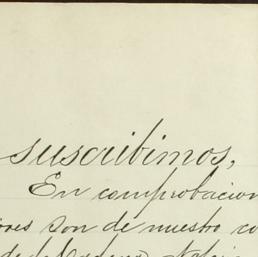 suscribimos,
En comprobacion
ores son de nuestro co
de